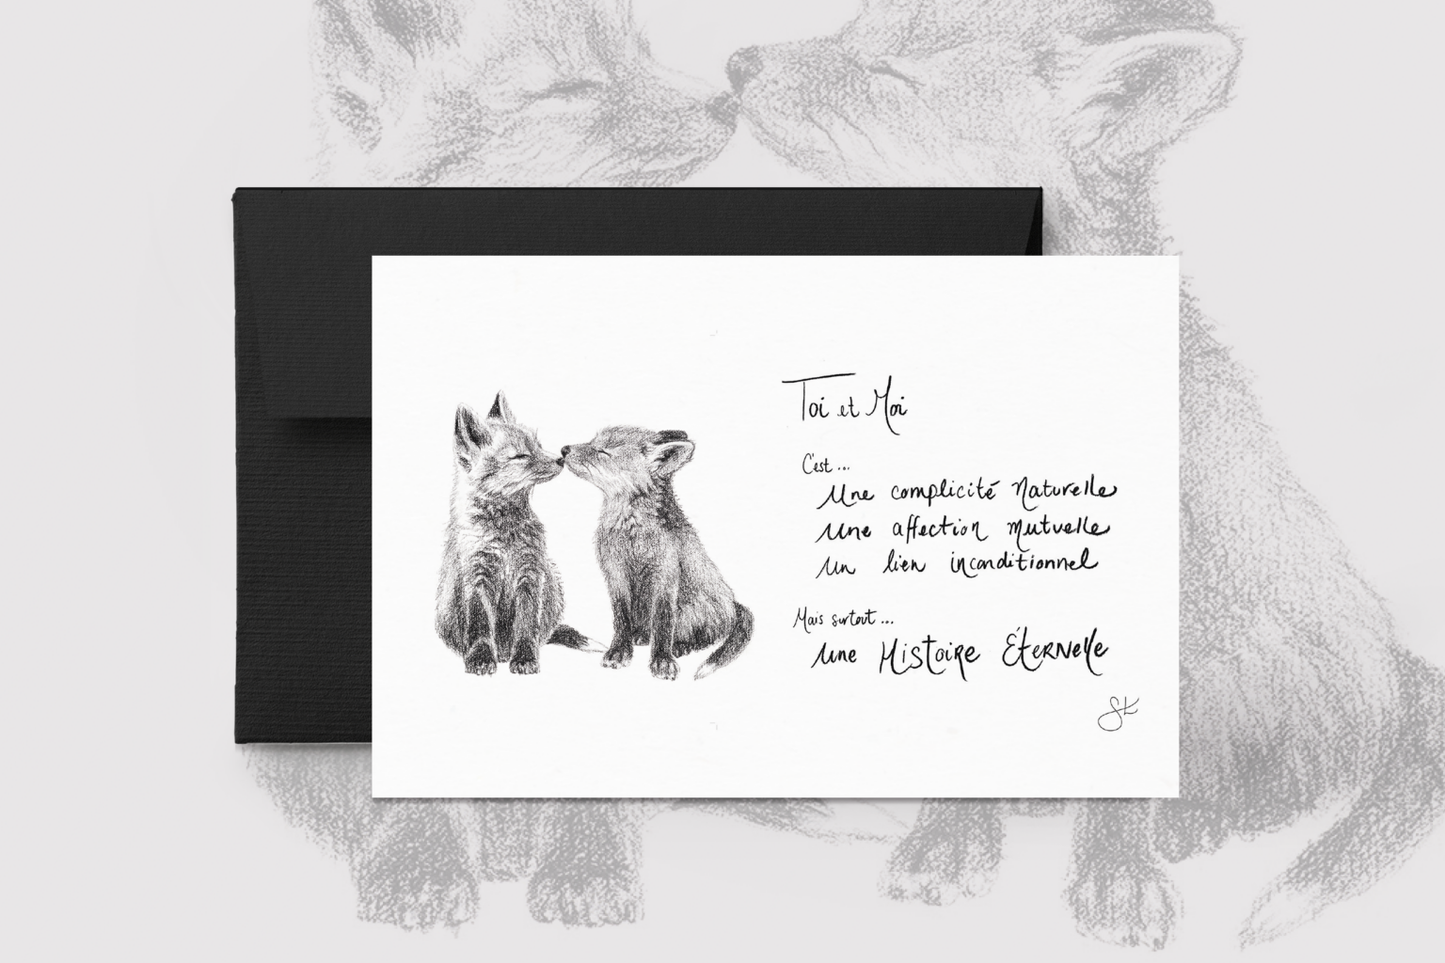 Toi et Moi
C'est ...
Une complicité Naturelle
Une affection mutuelle
Un lien inconditionnel
Mais surtout ...
Une Histoire Éternelle
SL